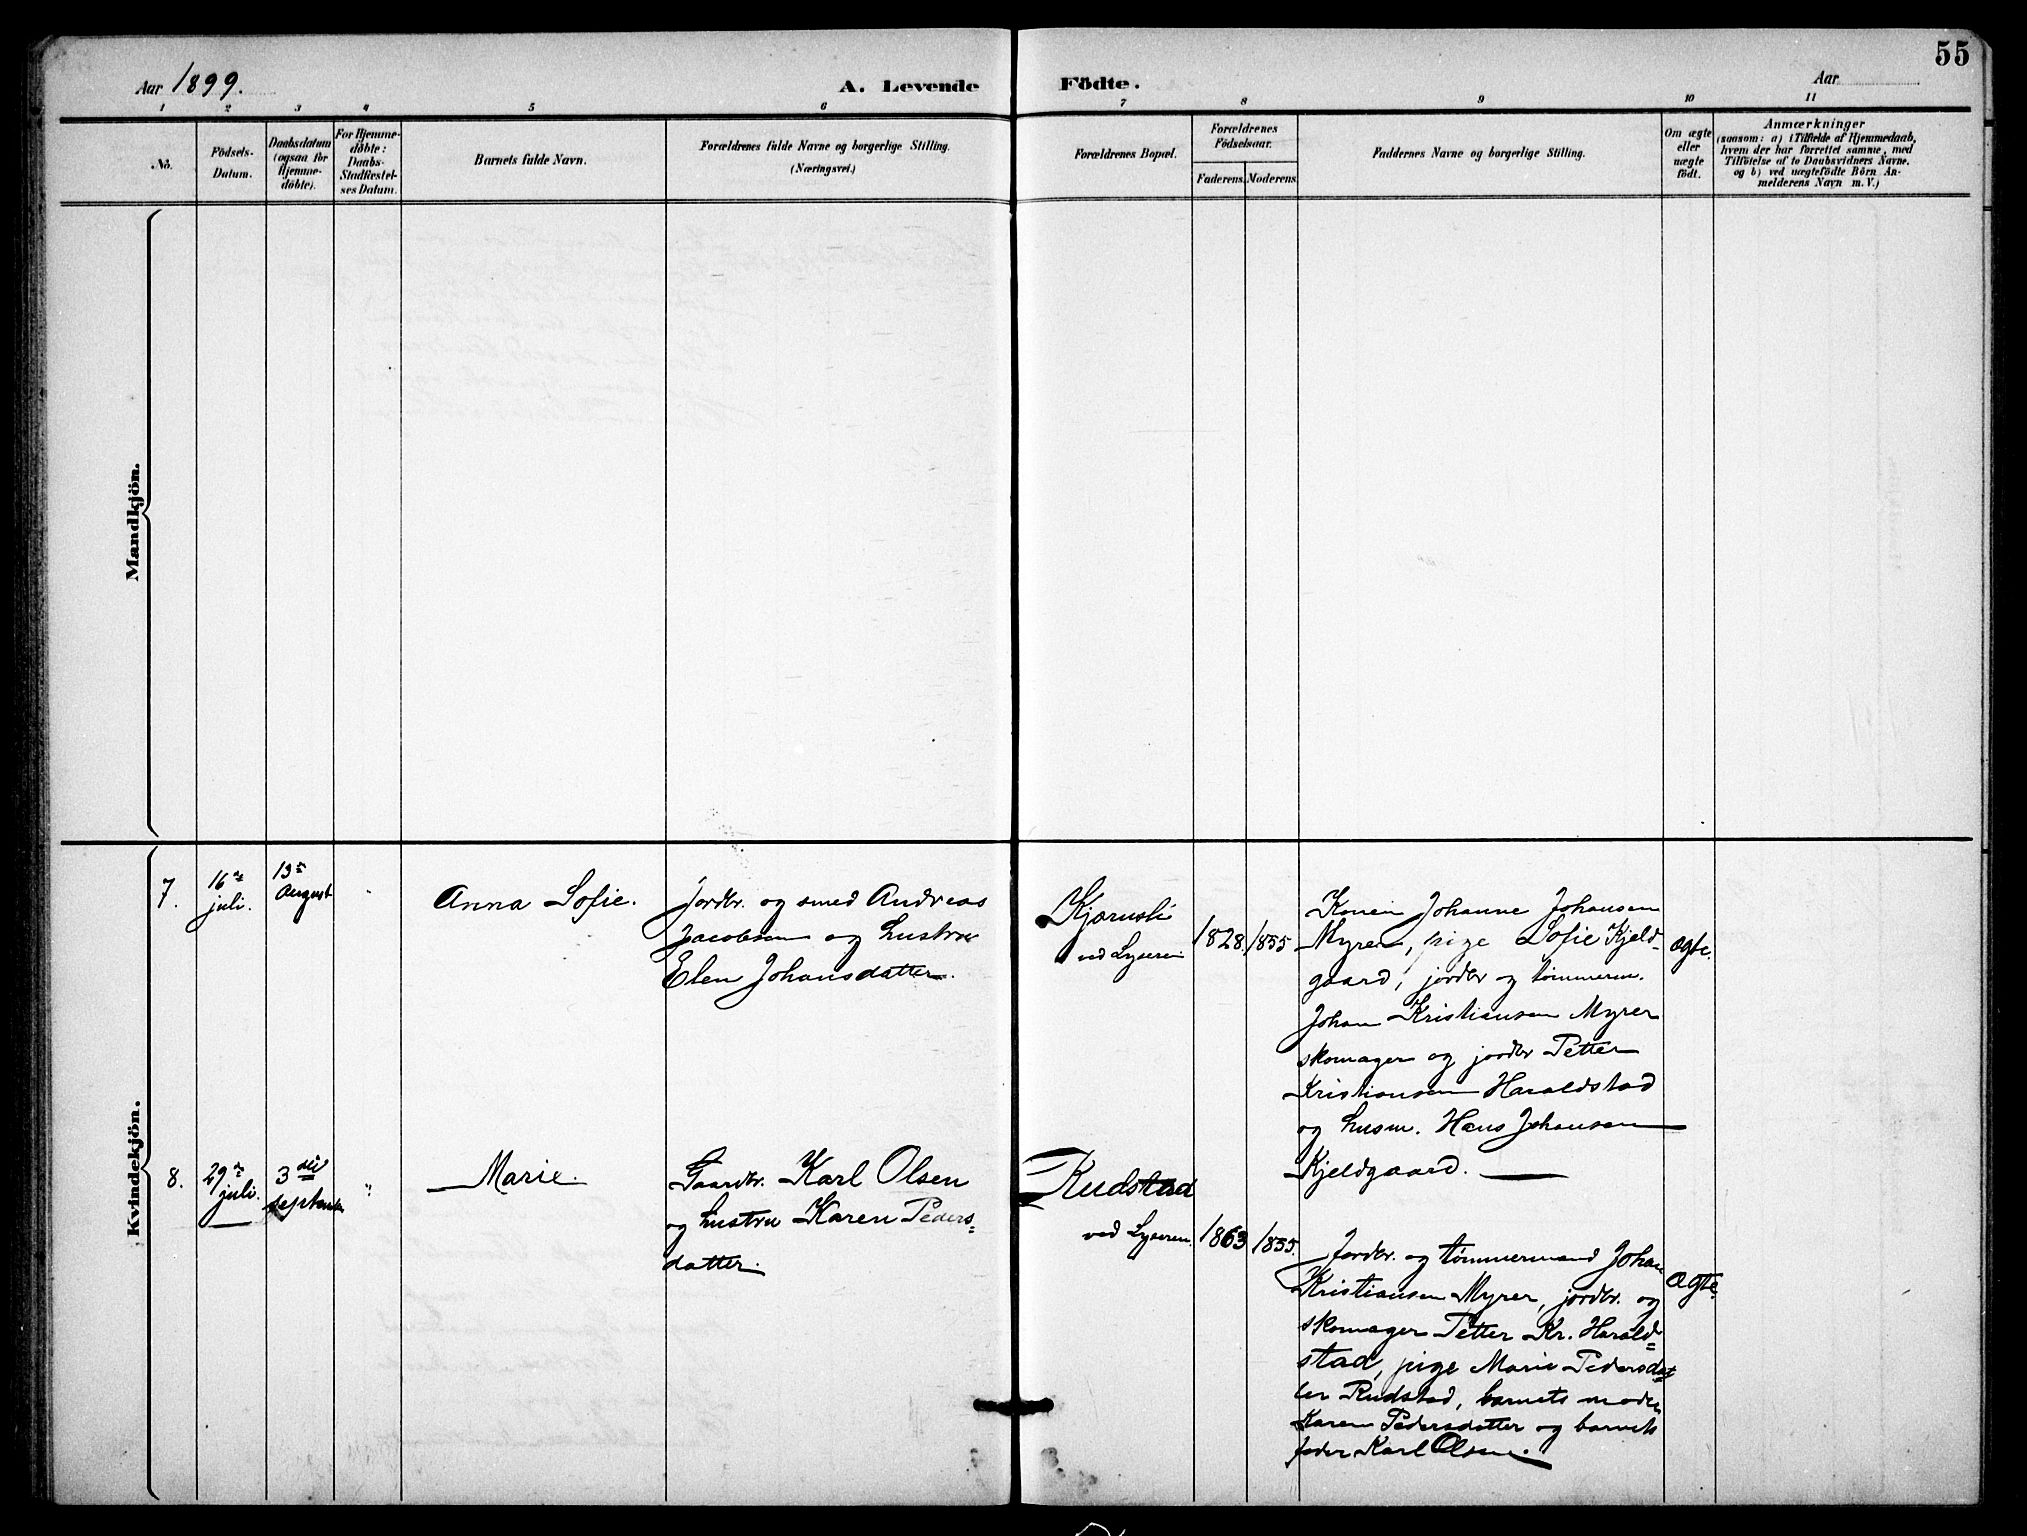 55
Aar 1899.
A. Levende Födte.
Aar
1 2 3 4 5 6 7 8 9 10 11
No.
Födsels-
Datum.
Daabsdatum
(ogsaa for
Hjemme-
döbte).
For Hjemme-
döbte:
Daabs-
Stadfæstel-
ses Datum.
Barnets fulde Navn.
Forældrenes fulde Navne og borgerlige Stilling.
(Næringsvei.)
Forældrenes Bopæl.
Forældrenes
Födselsaar.
Faderens. Moderens.
Faddernes Navne og borgerlige Stilling.
Om ægte
eller
uægte
födt.
Anmærkninger
(saasom: a) i Tilfælde af Hjemmedaab,
hvem der har forrettet samme, med
Tilföielse af to Daabsvidners Navne.
og b) ved uægtefödte Börn An-
melderens Navn m. V.)
Mandkjön.
Kvindekjön.
7.
16
juli.
13
August
"
Anna Sofie.
Jordbr. og smed Andreas
Jacobsen og hustru
Elen Johansdatter.
Kjærnsli
ved Lyseren
1828.
1855
Konen Johanne Johansen
Myrer, pige Sofie Kjeld-
gaard, jordbr og tømmerm.
Johan Kristiansen Myrer
skomager og jordbr Petter
Kristiansen Haraldstad
og husm. Hans Johansen
Kjeldgaard.
Ægte.
8.
29
juli.
3die
septemb
"
Marie.
Gaardbr. Karl Olsen
og hustru Karen Peders=
datter.
Rudstad
ved Lyseren.
1863
1855.
Jordbr. og tømmermand Johan
Kristiansen Myrer, jordbr. og
skomager Petter Kr. Harald=
stad, pige Marie Pedersdat
ter Rudstad, barnets moder
Karen Pedersdatter og barnets
fader Karl Olsen.
Ægte.